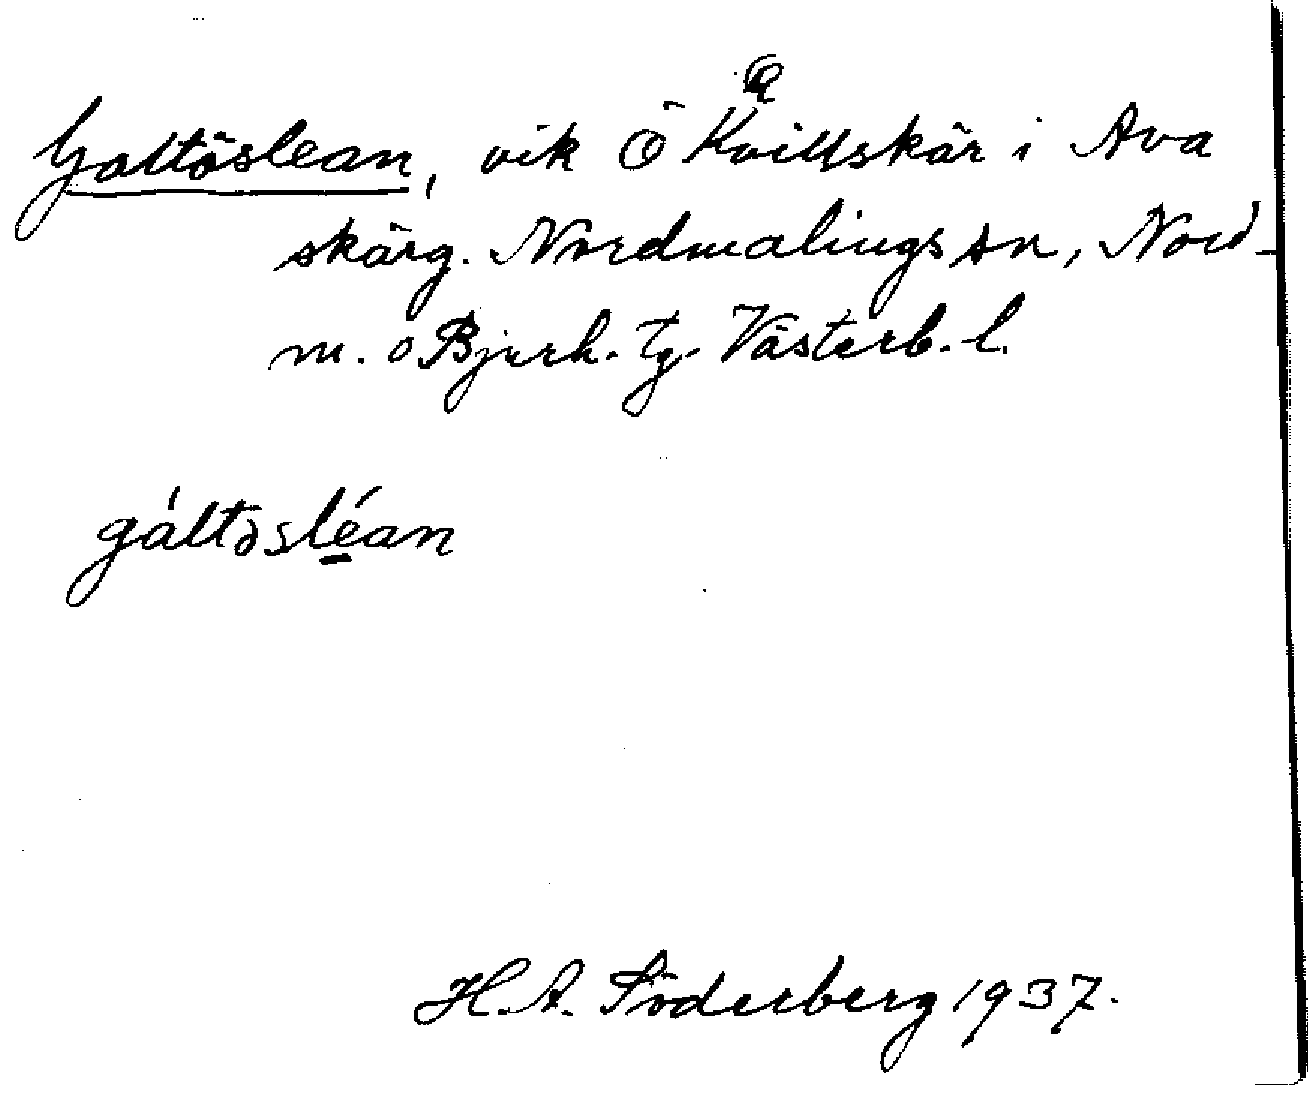 Galtöslean, vik Ö Kvillskär i Ava
skärg. Nordmalings sn, Nord-
m. o Bjurh. tg. Västerb. l.
gáltösléan
H. A. Söderberg 1937.